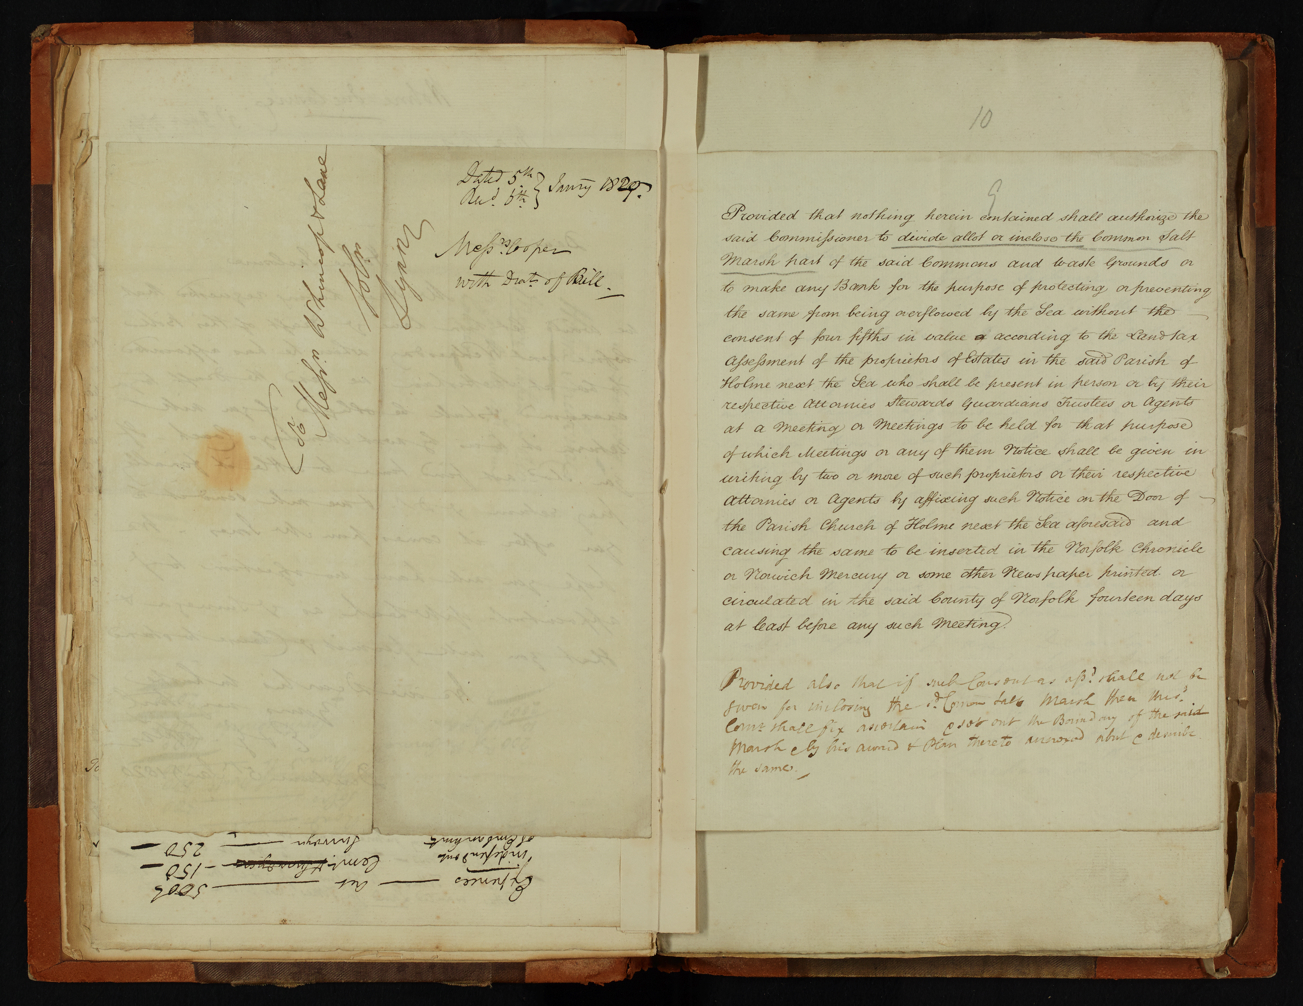 Dated 5th } Janry 1829.
Recd. 6th }
Messrs. Cooper
with Drat. of Bill.
To
Messrs. Whincop & Lane
Solrs.
Lynn
Expences Act 500£
independent Comr. & Surveyor 150
of Embankmt. Surveyr 250
10
9
Provided that nothing herein contained shall authorize the
said Commissioner to divide allot or inclose the Common Salt
Marsh part of the said Commons and waste Grounds or
to make any Bank for the purpose of protecting or preventing
the same from being overflowed by the Sea without the
consent of four fifths in value according to the Land tax
Assessment of the proprietors of Estates in the said Parish of
Holme next the Sea who shall be present in person or by their
respective Attornies Stewards Guardians Trustees or Agents
at a Meeting or Meetings to be held for that purpose
of which Meetings or any of them Notice shall be given in
writing by two or more of such proprietors or their respective
Attornies or Agents by affixing such Notice on the Door of
the Parish Church of Holme next the Sea aforesaid and
causing the same to be inserted in the Norfolk Chronicle
or Norwich Mercury or some other Newspaper printed or
circulated in the said County of Norfolk fourteen days
at least before any such Meeting.
Provided also that if such Consent as afsd. shall not be
given for inclosing the sd. Common Salt Marsh then the sd.
Comr. shall fix ascertain & set out the Boundary of the said
Marsh & by his award & Plan thereto annexed abut & describe
the same.